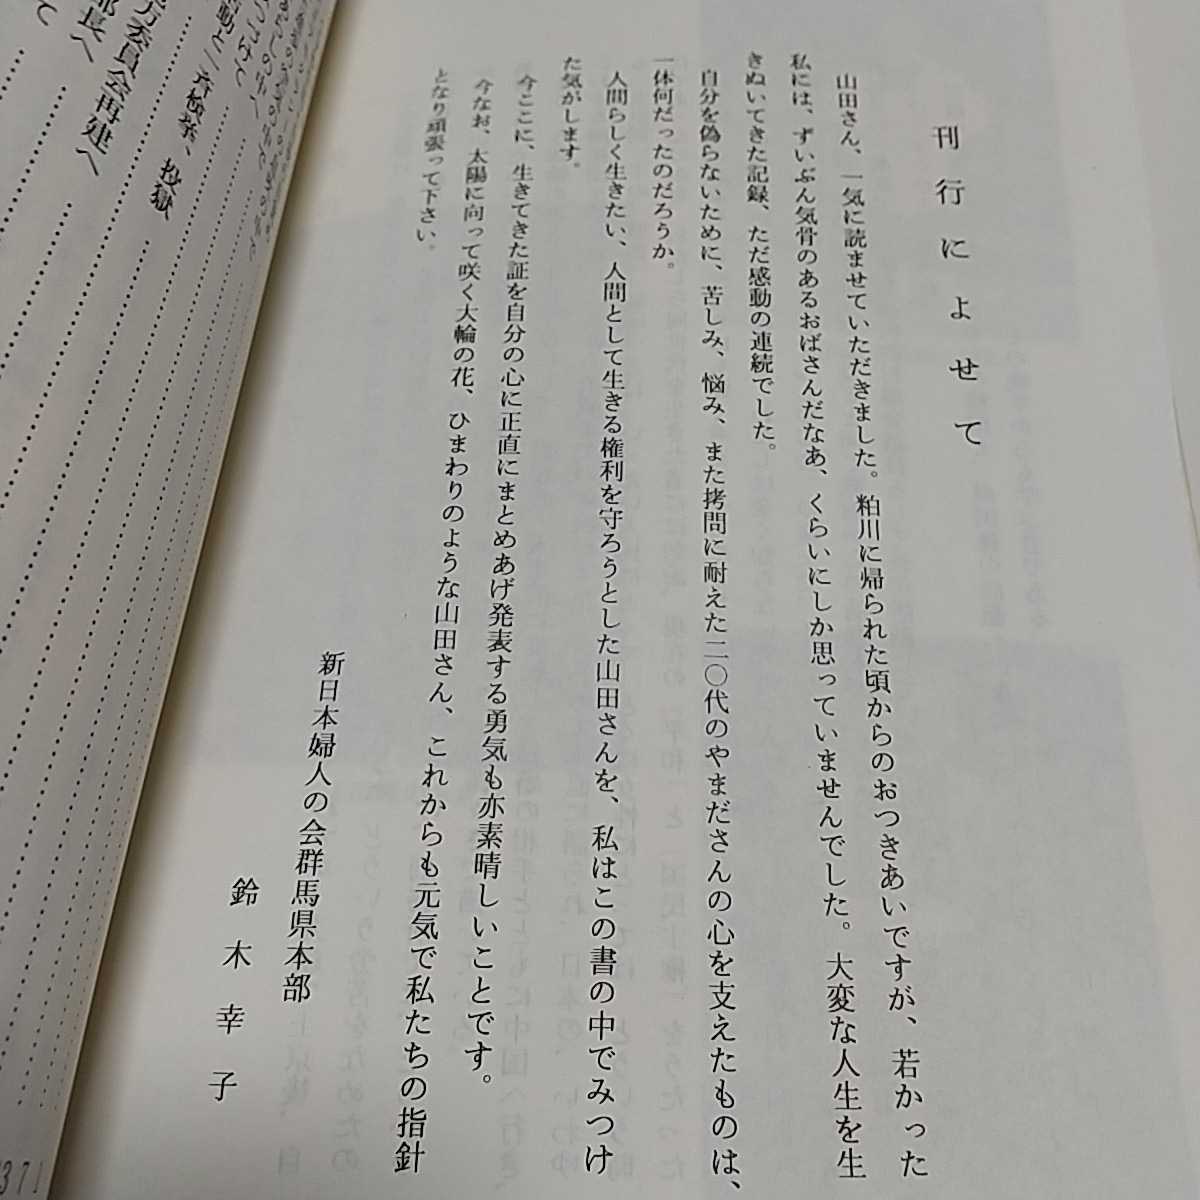 刊行によせて
山田さん、一気に読ませていただきました。粕川に帰られた頃からのおつきあいですが、若かった
私には、ずいぶん気骨のあるおばさんだなあ、くらいにしか思っていませんでした。大変な人生を生
きぬいてきた記録、ただ感動の連続でした。
自分を偽らないために、苦しみ、悩み、また拷問に耐えた二〇代のやまださんの心を支えたものは、
一体何だったのだろうか。
人間らしく生きたい、人間として生きる権利を守ろうとした山田さんを、私はこの書の中でみつけ
た気がします。
今ここに、生きてきた証を自分の心に正直にまとめあげ発表する勇気も亦素晴しいことです。
今なお、太陽に向って咲く大輪の花、ひまわりのような山田さん、これからも元気で私たちの指針
となり頑張って下さい。
新日本婦人の会群馬県本部
鈴木幸子
動と一斉検挙、投獄
方委員会再建へ
部長へ
て
371